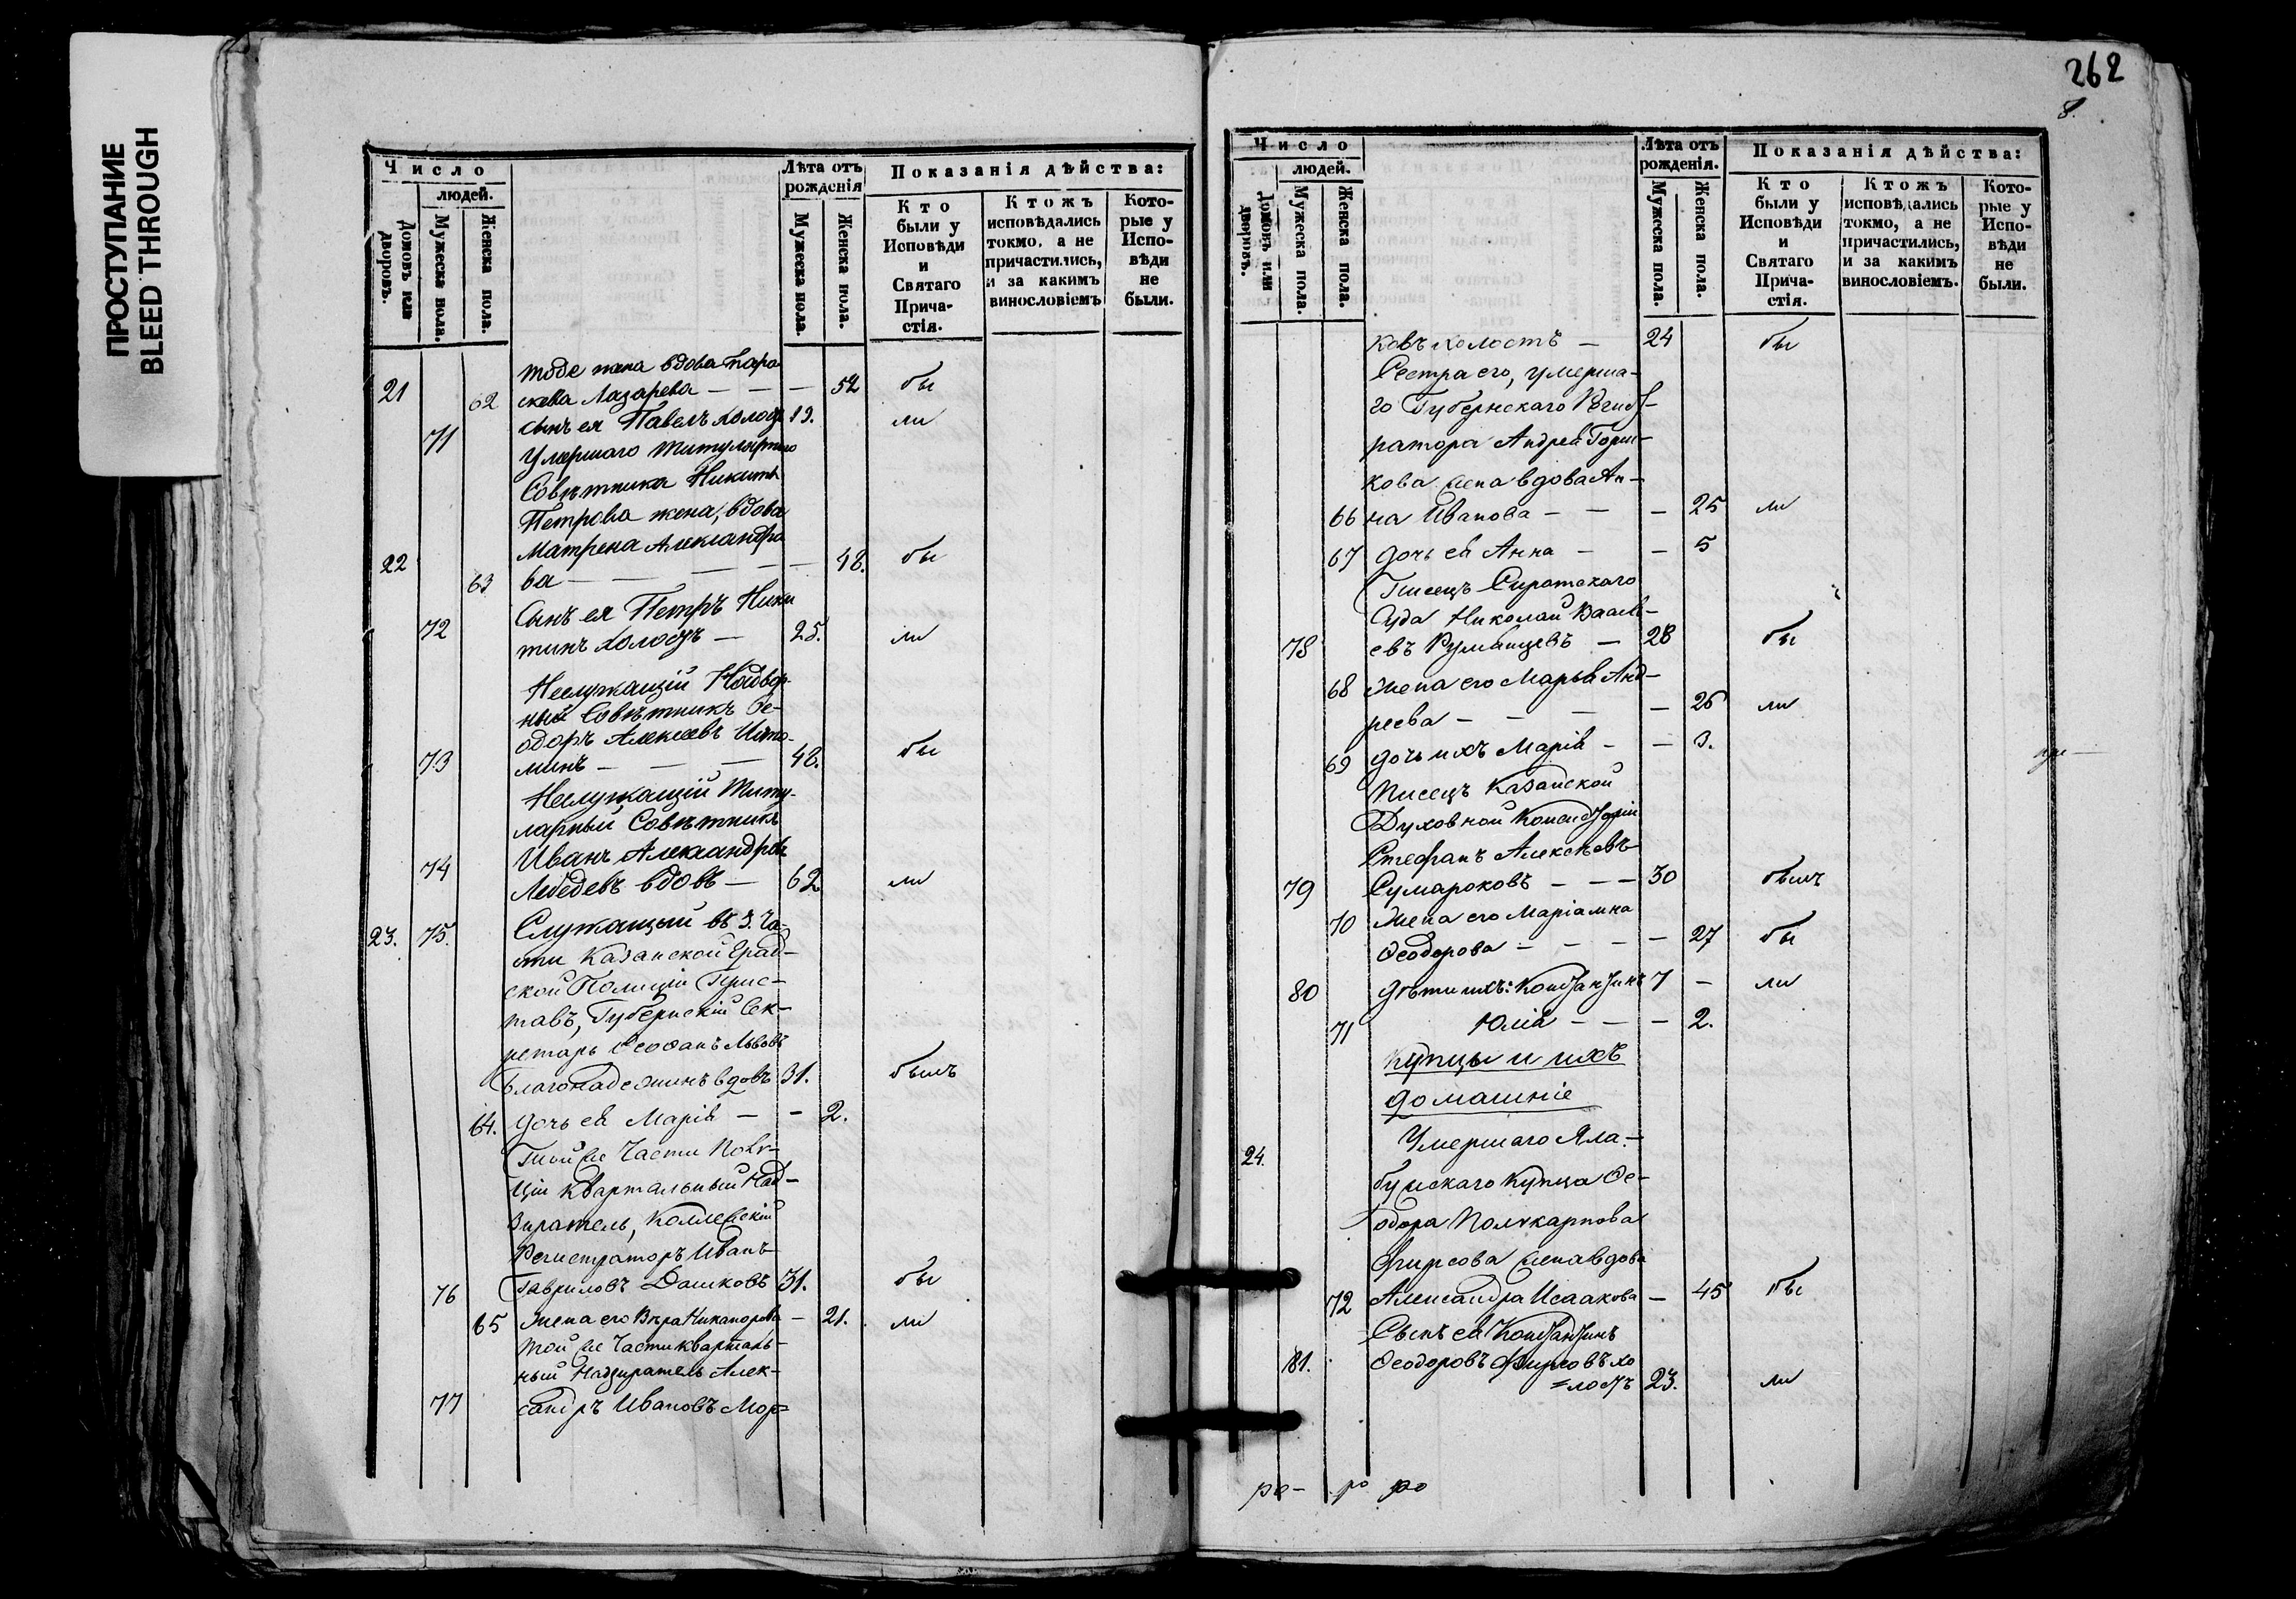 ПРОСТУПАНИЕ
BLEED THROUGH
Число
людей.
Домовъ или дворовъ.
Мужеска пола.
Женска пола.
Лѣта отъ рожденія
Мужеска пола.
Женска пола.
Показанія дѣйства:
Кто были у Исповѣди и Святаго Причастія.
Ктожъ исповѣдались токмо, а не причастились, и за какимъ винословіемъ
Которые у Исповѣди не были.
жена вдова Пара-
21 62 скева Лазарева — — — 52 бы
71 сынъ ея Павелъ холостъ 19. ли
Умершаго Титулярнаго
Совѣтника Никиты
Петрова жена, вдова
22 Матрена Александро
63 ва — — — — 48. бы
Сынъ ея Петръ Ники
72 тинъ холостъ — 25. ли
Неслужащій Надвор-
ный Совѣтникъ Ѳе-
одоръ Алексеевъ Исто-
73 минъ — — — 48. бы
Неслужащій Титу-
лярный Совѣтникъ
74 Иванъ Александровъ
Лебедевъ вдовъ — 62 ли
23. 75. Служащій въ 3. Ча-
сти Казанской Град-
ской Полиціи Прис-
тавъ, Губернскій Сек-
ретарь Ѳеофанъ Львовъ
Благонадежинъ вдовъ 31. былъ
64. дочь ея Марія — — 2.
Той же Части Поли-
ціи Квартальный Над-
зиратель, Коллежскій
Регистраторъ Иванъ
76 Гавриловъ Дашковъ 31. бы
65 Жена его Вѣра Никанорова — 21. ли
Той же Части Кварталь-
ный Надзиратель Алек-
77 сандръ Ивановъ Мор=
262
8.
Число
людей.
Домовъ или дворовъ.
Мужеска пола.
Женска пола.
Лѣта отъ рожденія.
Мужеска пола.
Женска пола.
Показанія дѣйства:
Кто были у Исповѣди и Святаго Причастія.
Ктожъ исповѣдались токмо, а не причастились, и за какимъ винословіемъ.
Которые у Исповѣди не были.
ковъ холостъ — 24 бы
Сестра его, умерша-
го Губернскаго Регист-
ратора Андрея Горш-
кова жена вдова Ан-
66 на Иванова — — — 25 ли
67 дочь ея Анна — — 5
Писецъ Сиротскаго
Суда Николай Василь-
78 евъ Румянцевъ — 28 бы
68 Жена его Марья Анд-
реева — — — — 26 ли
69 дочь ихъ Марія — — 3.
Писецъ Казанской
Духовной Консисторіи
Стефанъ Алексѣевъ
79 Сумароковъ — — — 30 былъ
70 Жена его Маріамна
Ѳеодорова — — — — 27 бы
80 дѣти ихъ: Константинъ 7 — ли
71 Юлія — — — 2.
Купцы и ихъ
домашніе
24. Умершаго Ела-
бужскаго Купца Ѳе-
одора Поликарпова
Фирсова жена вдова
72 Александра Исаакова — 45 бы
Сынъ ея Константинъ
81. Ѳеодоровъ Фирсовъ хо
=лостъ 23. ли
ро- ро ро